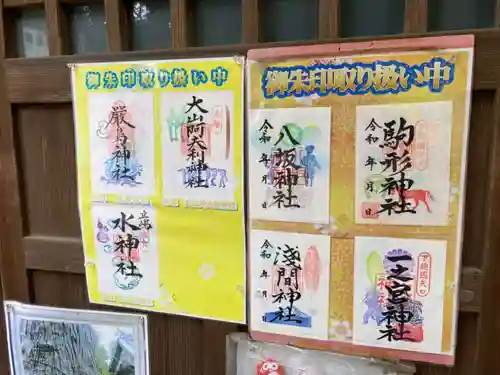 御朱印取り扱い中
嚴島神社
大山阿夫利神社
水神社
御朱印取り扱い中
令和 年 月 日
八坂神社
令和 年 月 日
駒形神社
令和 年 月 日
浅間神社
下総國矢口
一之宮神社